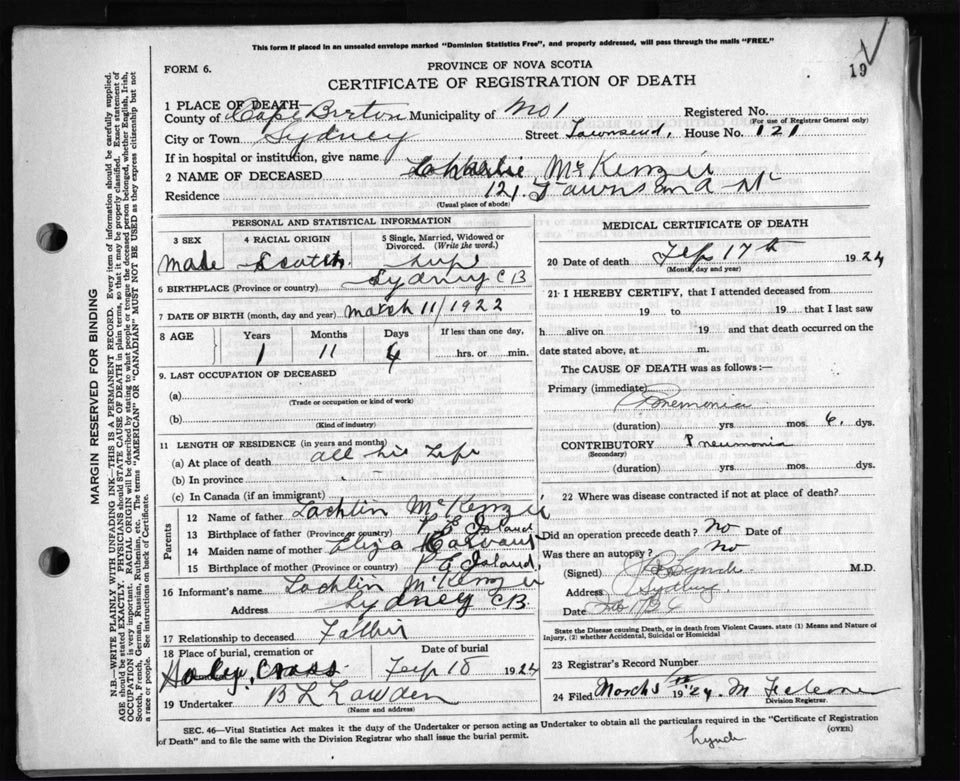 This form if placed in an unsealed envelope marked "Dominion Statistics Free", and properly addressed, will pass through the mails "FREE."
19
FORM 6.
PROVINCE OF NOVA SCOTIA
CERTIFICATE OF REGISTRATION OF DEATH
1 PLACE OF DEATH—
County of Cape Breton Municipality of No 1 Registered No.
(For use of Registrar General only)
City or Town Sydney Street Townsend, House No. 121
If in hospital or institution, give name
2 NAME OF DECEASED McKenzie
Residence 121.
(Usual place of abode)
MARGIN RESERVED FOR BINDING
N.B.—WRITE PLAINLY WITH UNFADING INK—THIS IS A PERMANENT RECORD. Every item of information should be carefully supplied.
AGE should be stated EXACTLY. PHYSICIANS should STATE CAUSE OF DEATH in plain terms, so that it may be properly classified. Exact statement of
OCCUPATION is very important. RACIAL ORIGIN will be described by stating to what people or tongue the deceased person belonged, whether English, Irish,
Scotch, French, German, Russian, Ruthenian, etc. The terms "AMERICAN" or "CANADIAN" MUST NOT BE USED as they express citizenship but not
a race or people. See instructions on back of Certificate.
PERSONAL AND STATISTICAL INFORMATION
3 SEX 4 RACIAL ORIGIN 5 Single, Married, Widowed or
Divorced. (Write the word.)
Male Scotch
6 BIRTHPLACE (Province or country) Sydney CB
7 DATE OF BIRTH (month, day and year) March 11/1922
8 AGE Years Months Days If less than one day,
1 11 hrs. or min.
9. LAST OCCUPATION OF DECEASED
(a)
(Trade or occupation or kind of work)
(b)
(Kind of industry)
11 LENGTH OF RESIDENCE (in years and months)
(a) At place of death all his Life
(b) In province
(c) In Canada (if an immigrant)
Parents
12 Name of father Lachlin McKenzie
13 Birthplace of father (Province or country) P E Island
14 Maiden name of mother Eliza
15 Birthplace of mother (Province or country) P E Island
16 Informant's name Lachlin McKenzie
Address Sydney CB
17 Relationship to deceased Father
18 Place of burial, cremation or Date of burial
Holy Cross Feb 18 1924
19 Undertaker B L Lowden
(Name and address)
MEDICAL CERTIFICATE OF DEATH
20 Date of death Feb 17th 1924
(Month, day and year)
21 I HEREBY CERTIFY, that I attended deceased from
19 to 19 that I last saw
h alive on 19 and that death occurred on the
date stated above, at m.
The CAUSE OF DEATH was as follows:—
Primary (immediate)
Pnemonia
(duration) yrs. mos. 6 dys.
CONTRIBUTORY Pneumonia
(Secondary)
(duration) yrs. mos. dys.
22 Where was disease contracted if not at place of death?
Did an operation precede death? no Date of
Was there an autopsy? no
(Signed) Lynch M.D.
Address Sydney
Date
State the Disease causing Death, or in death from Violent Causes. state (1) Means and Nature
of Injury, (2) whether Accidental, Suicidal or Homicidal
23 Registrar's Record Number
24 Filed March 1924 M
Division Registrar.
SEC. 46—Vital Statistics Act makes it the duty of the Undertaker or person acting as Undertaker to obtain all the particulars required in the "Certificate of Registration
of Death" and to file the same with the Division Registrar who shall issue the burial permit. (OVER)
Lynch